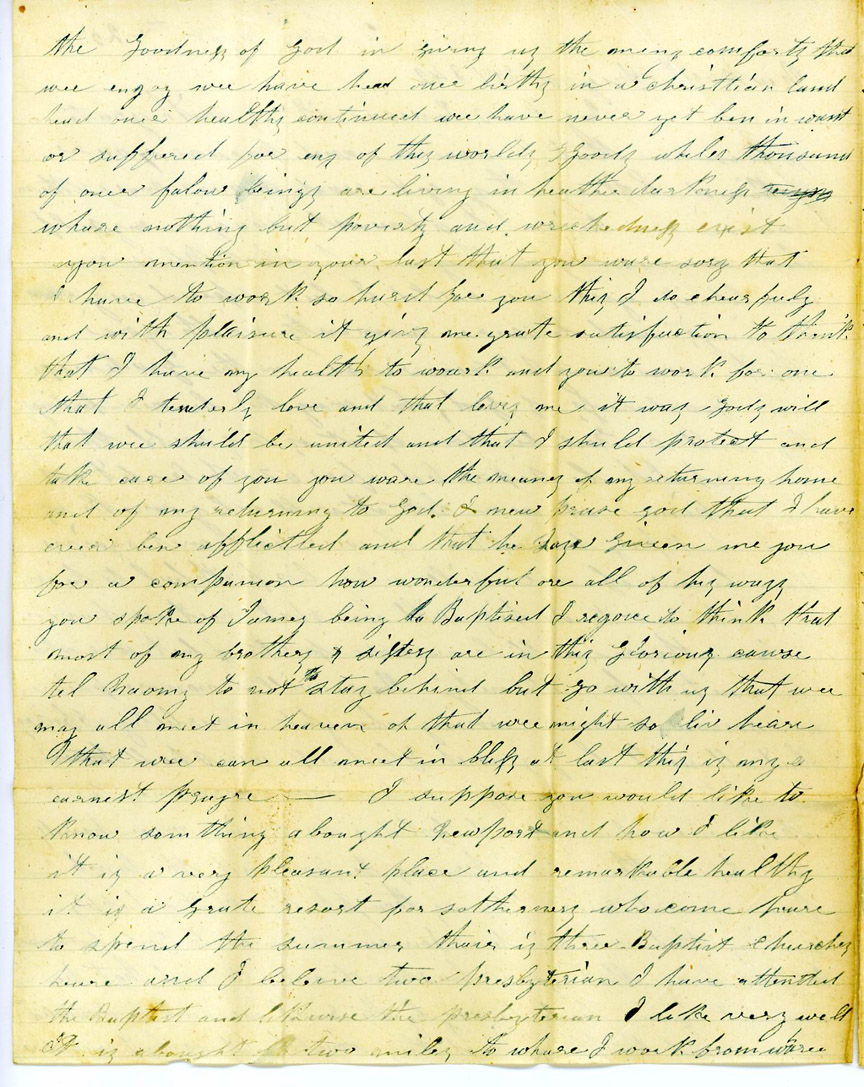 the Goodness of God in giving us the meny comforts that
wee enjoy wee have had ouer births in a christian land
had ouer healths continued wee have never yet ben in want
or suffered for eny of this worlds Goods whiles thousand
of ouer falow beings are living in heathe darkness
whare nothing but poverty and wrechedness exist
you mention in your last that you ware sory that
I have to work so hard for you this I do chearfuly
and with plaisure it givs me grate satisfaction to think
that I have my health to wourk and you to work for one
that I tenderly love and that loves me it was Gods will
that wee shuld be united and that I shuld protect and
take care of you you ware the means of my returning home
and of my returning to God. I now praise god that I have
ever ben afflictted and that he has Given me you
for a companion how wonderful are all of his ways
you spoke of James being Baptised I rejoce to think that
most of my brothers & sisters are in this Glorious cawse
tel Naomy to not to stay behind but go with us that wee
may all meet in heaven o that wee might so liv heare
that wee can all meet in bliss at last this is my
earnest prayre — I suppose you would like to
know somthing abought Newport and how I like
it is a very pleasant place and remarkable healthy
it is a Grate resort for sotherners who come heare
to spend the summer thair is three Baptist Churches
heare and I beleve two presbyterian I have attended
the Baptist and likewise the presbyterian I like very well
It is abought two miles to whare I work from whare